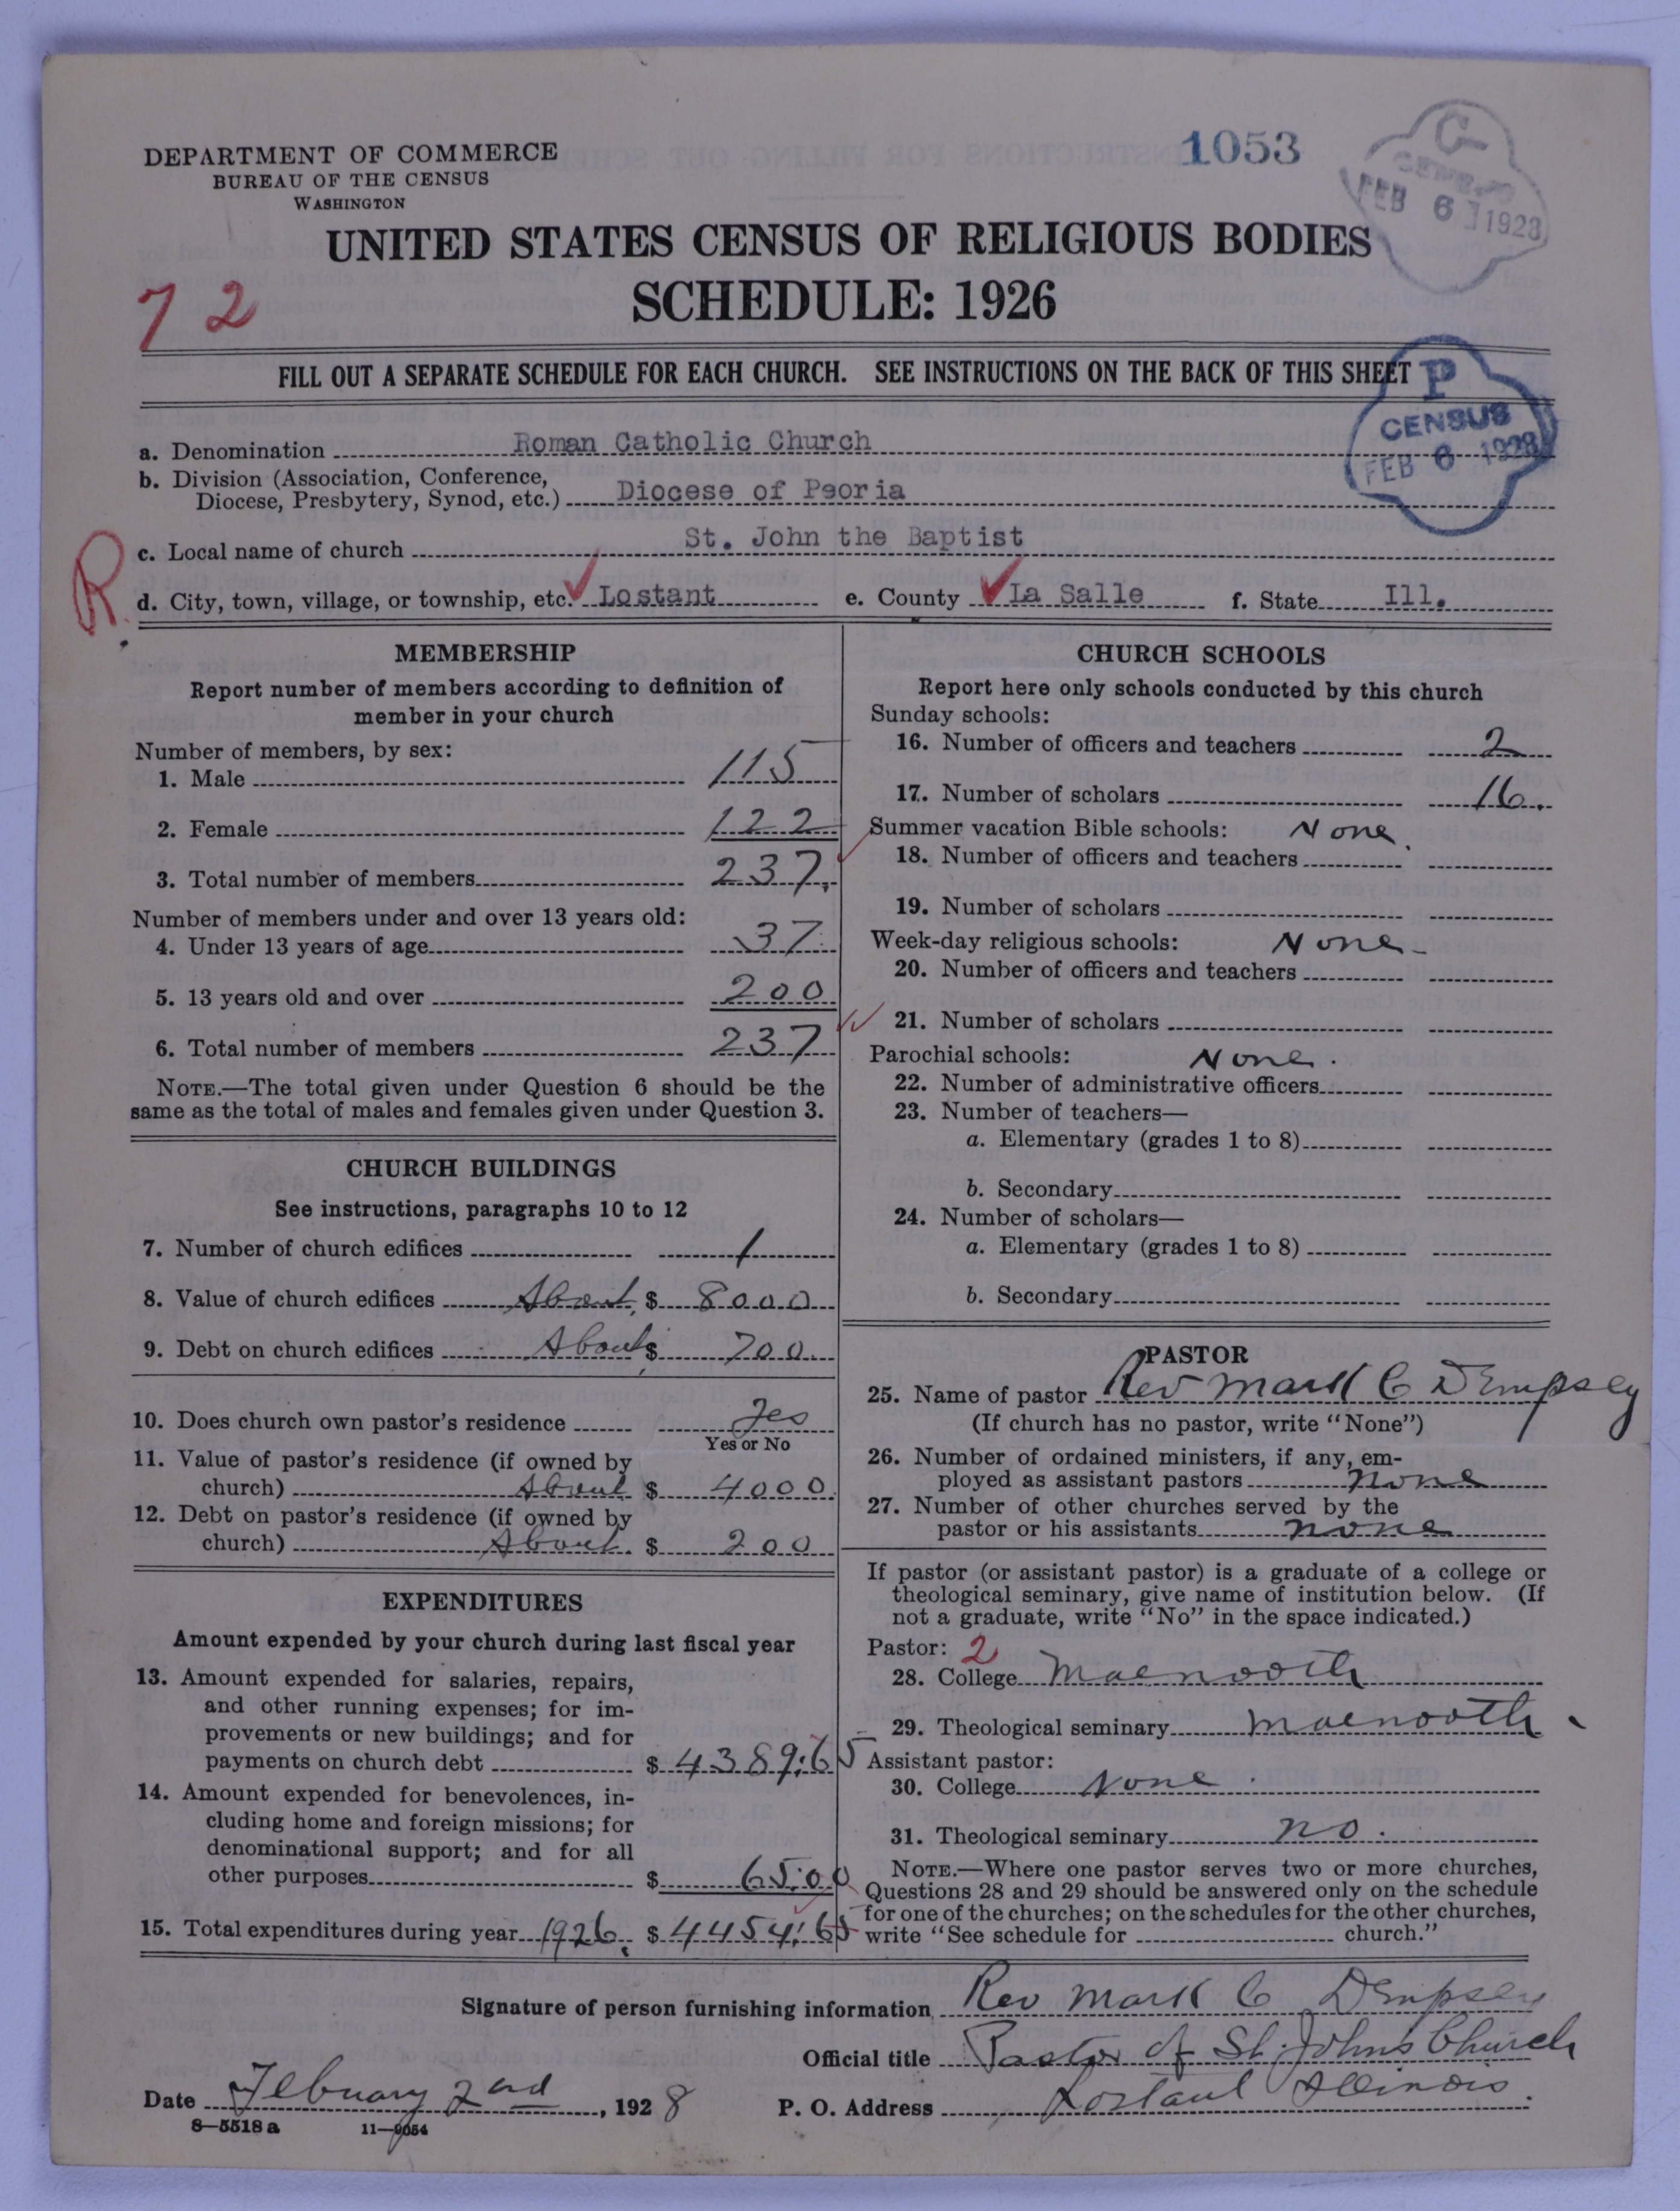 DEPARTMENT OF COMMERCE
BUREAU OF THE CENSUS
WASHINGTON
1053
G
CENSUS
FEB 6 1928
UNITED STATES CENSUS OF RELIGIOUS BODIES
SCHEDULE: 1926
72
FILL OUT A SEPARATE SCHEDULE FOR EACH CHURCH. SEE INSTRUCTIONS ON THE BACK OF THIS SHEET
P
CENSUS
FEB 6 1928
a. Denomination Roman Catholic Church
b. Division (Association, Conference,
Diocese, Presbytery, Synod, etc.) Diocese of Peoria
c. Local name of church St. John the Baptist
R.
d. City, town, village, or township, etc. Lostant e. County La Salle f. State Ill.
MEMBERSHIP
Report number of members according to definition of
member in your church
Number of members, by sex:
1. Male 115
2. Female 122
3. Total number of members 237.
Number of members under and over 13 years old:
4. Under 13 years of age 37
5. 13 years old and over 200
6. Total number of members 237
NOTE.—The total given under Question 6 should be the
same as the total of males and females given under Question 3.
CHURCH BUILDINGS
See instructions, paragraphs 10 to 12
7. Number of church edifices 1
8. Value of church edifices About $ 8000
9. Debt on church edifices About $ 700.
10. Does church own pastor's residence Yes
Yes or No
11. Value of pastor's residence (if owned by
church) About $ 4000.
12. Debt on pastor's residence (if owned by
church) About. $ 200
EXPENDITURES
Amount expended by your church during last fiscal year
13. Amount expended for salaries, repairs,
and other running expenses; for im-
provements or new buildings; and for
payments on church debt $ 4389:65
14. Amount expended for benevolences, in-
cluding home and foreign missions; for
denominational support; and for all
other purposes $ 65:00
15. Total expenditures during year 1926. $ 4454:65
CHURCH SCHOOLS
Report here only schools conducted by this church
Sunday schools:
16. Number of officers and teachers 2
17. Number of scholars 16.
Summer vacation Bible schools: None.
18. Number of officers and teachers
19. Number of scholars
Week-day religious schools: None-
20. Number of officers and teachers
21. Number of scholars
Parochial schools: None.
22. Number of administrative officers
23. Number of teachers—
a. Elementary (grades 1 to 8)
b. Secondary
24. Number of scholars—
a. Elementary (grades 1 to 8)
b. Secondary
PASTOR
25. Name of pastor Rev Mark C Dempsey
(If church has no pastor, write "None")
26. Number of ordained ministers, if any, em-
ployed as assistant pastors none
27. Number of other churches served by the
pastor or his assistants none
If pastor (or assistant pastor) is a graduate of a college or
theological seminary, give name of institution below. (If
not a graduate, write "No" in the space indicated.)
Pastor: 2
28. College Maenooth
29. Theological seminary Maenooth.
Assistant pastor:
30. College None.
31. Theological seminary no.
NOTE.—Where one pastor serves two or more churches,
Questions 28 and 29 should be answered only on the schedule
for one of the churches; on the schedules for the other churches,
write "See schedule for church."
Signature of person furnishing information Rev Mark C Dempsey
Official title Pastor of St. Johns Church
Date Febuary 2nd, 1928 P. O. Address Lostant Illinois.
8—5518 a 11—9054